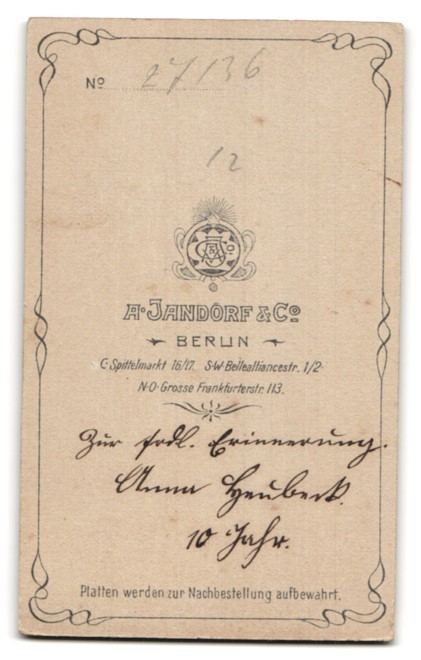 Nº 27136
12
A. JANDORF & Cº
BERLIN
C. Spittelmarkt 16/17. S.W. Bellealliancestr. 1/2.
N.O. Grosse Frankfurterstr. 113.
Zur frdl. Erinnerung.
Anna Heubeck.
10 Jahr.
Platten werden zur Nachbestellung aufbewahrt.